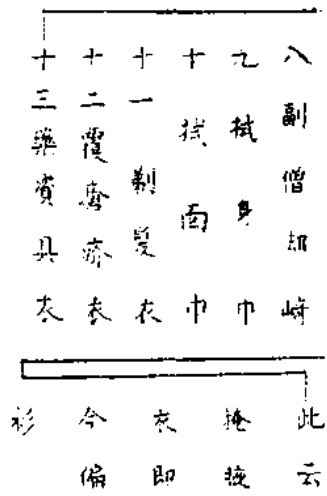 八副僧却崎
九拭身巾
十拭面巾
十一剃髮衣
十二覆瘡疥衣
十三藥資具衣
此云
掩腋
衣即
今偏
衫